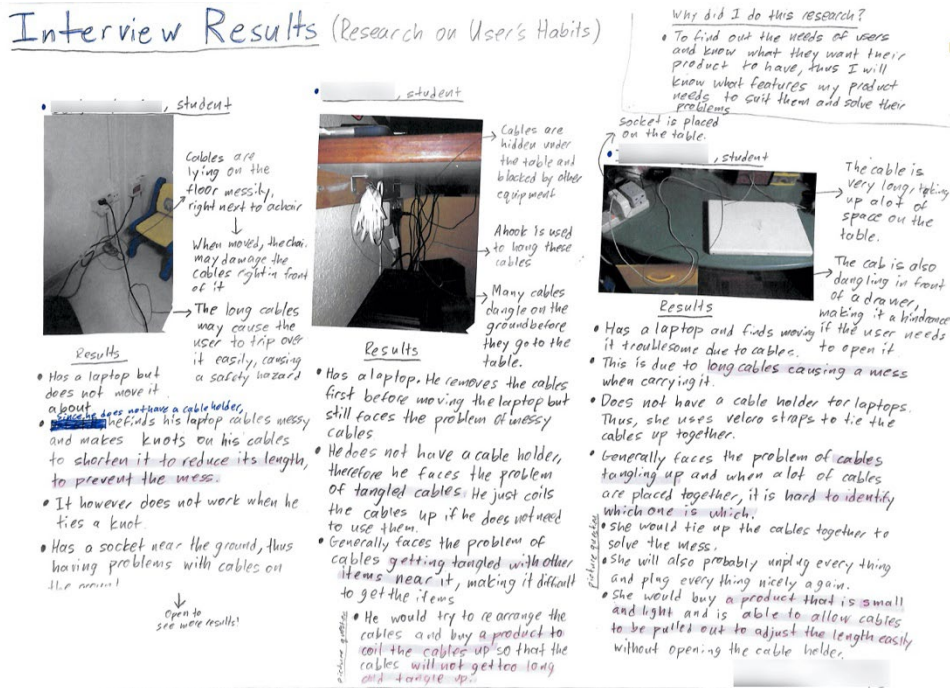 Interview Results (Research on User's Habits)
Why did I do this research?
• To find out the needs of users
and know what they want their
product to have, thus I will
know what features my product
needs to suit them and solve their
problems
•
, student
Cables are
lying on the
floor messily,
right next to a chair
When moved, the chair
may damage the
cables right in front
of it
The long cables
may cause the
user to trip over
it easily, causing
a safety hazard
Results
• Has a laptop but
does not move it
about
• Since he does not have a cable holder,
he finds his laptop cables messy
and makes knots on his cables
to shorten it to reduce its length,
to prevent the mess.
• It however does not work when he
ties a knot.
• Has a socket near the ground, thus
having problems with cables on
the ground
Open to
see more results!
•
, student
Cables are
hidden under
the table and
blocked by other
equipment
A hook is used
to hang these
cables
Many cables
dangle on the
ground before
they go to the
table.
Results
• Has a laptop. He removes the cables
first before moving the laptop but
still faces the problem of messy
cables
• He does not have a cable holder,
therefore he faces the problem
of tangled cables. He just coils
the cables up if he does not need
to use them.
• Generally faces the problem of
cables getting tangled with other
items near it, making it difficult
to get the items
picture quotes
• He would try to rearrange the
cables and buy a product to
coil the cables up so that the
cables will not get too long
and tangle up.
socket is placed
on the table.
•
, student
The cable is
very long, taking
up alot of
space on the
table.
The cab is also
dangling in front
of a drawer,
making it a hindrance
if the user needs
to open it
Results
• Has a laptop and finds moving
it troublesome due to cables.
• This is due to long cables causing a mess
when carrying it.
• Does not have a cable holder for laptops.
Thus, she uses velcro straps to tie the
cables up together.
• Generally faces the problem of cables
tangling up and when alot of cables
are placed together, it is hard to identify
which one is which.
picture quotes
• She would tie up the cables together to
solve the mess.
• She will also probably unplug every thing
and plug every thing nicely again.
• She would buy a product that is small
and light and is able to allow cables
to be pulled out to adjust the length easily
without opening the cable holder.